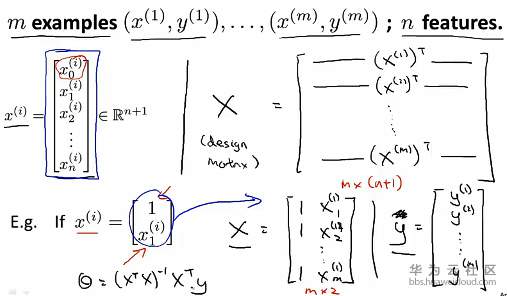 m examples (x^{(1)}, y^{(1)}), . . . , (x^{(m)}, y^{(m)}) ; n features.
x^{(i)} = [x_0^{(i)} x_1^{(i)} x_2^{(i)} ⋮ x_n^{(i)}] ∈ ℝ^{n+1}
X = [— (x^{(1)})^T — — (x^{(2)})^T — ⋮ — (x^{(m)})^T —]
(design matrix)
m x (n+1)
E.g. If x^{(i)} = [1 x_1^{(i)}]
X = [1 x_1^{(1)} 1 x_2^{(1)} ⋮ 1 x_m^{(1)}]
m x 2
y = [y^{(1)} y^{(2)} ⋮ y^{(m)}]
θ = (X^T X)^{-1} X^T y
华为云社区
bbs.huaweicloud.com